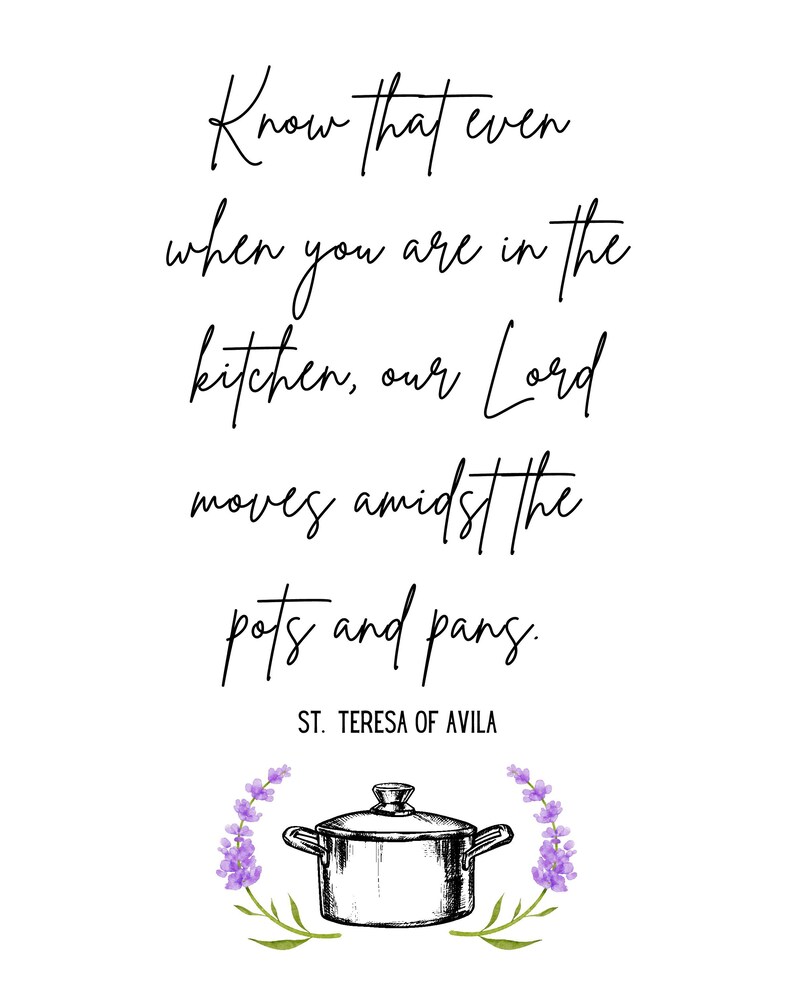 Know that even
when you are in the
kitchen, our Lord
moves amidst the
pots and pans.
ST. TERESA OF AVILA